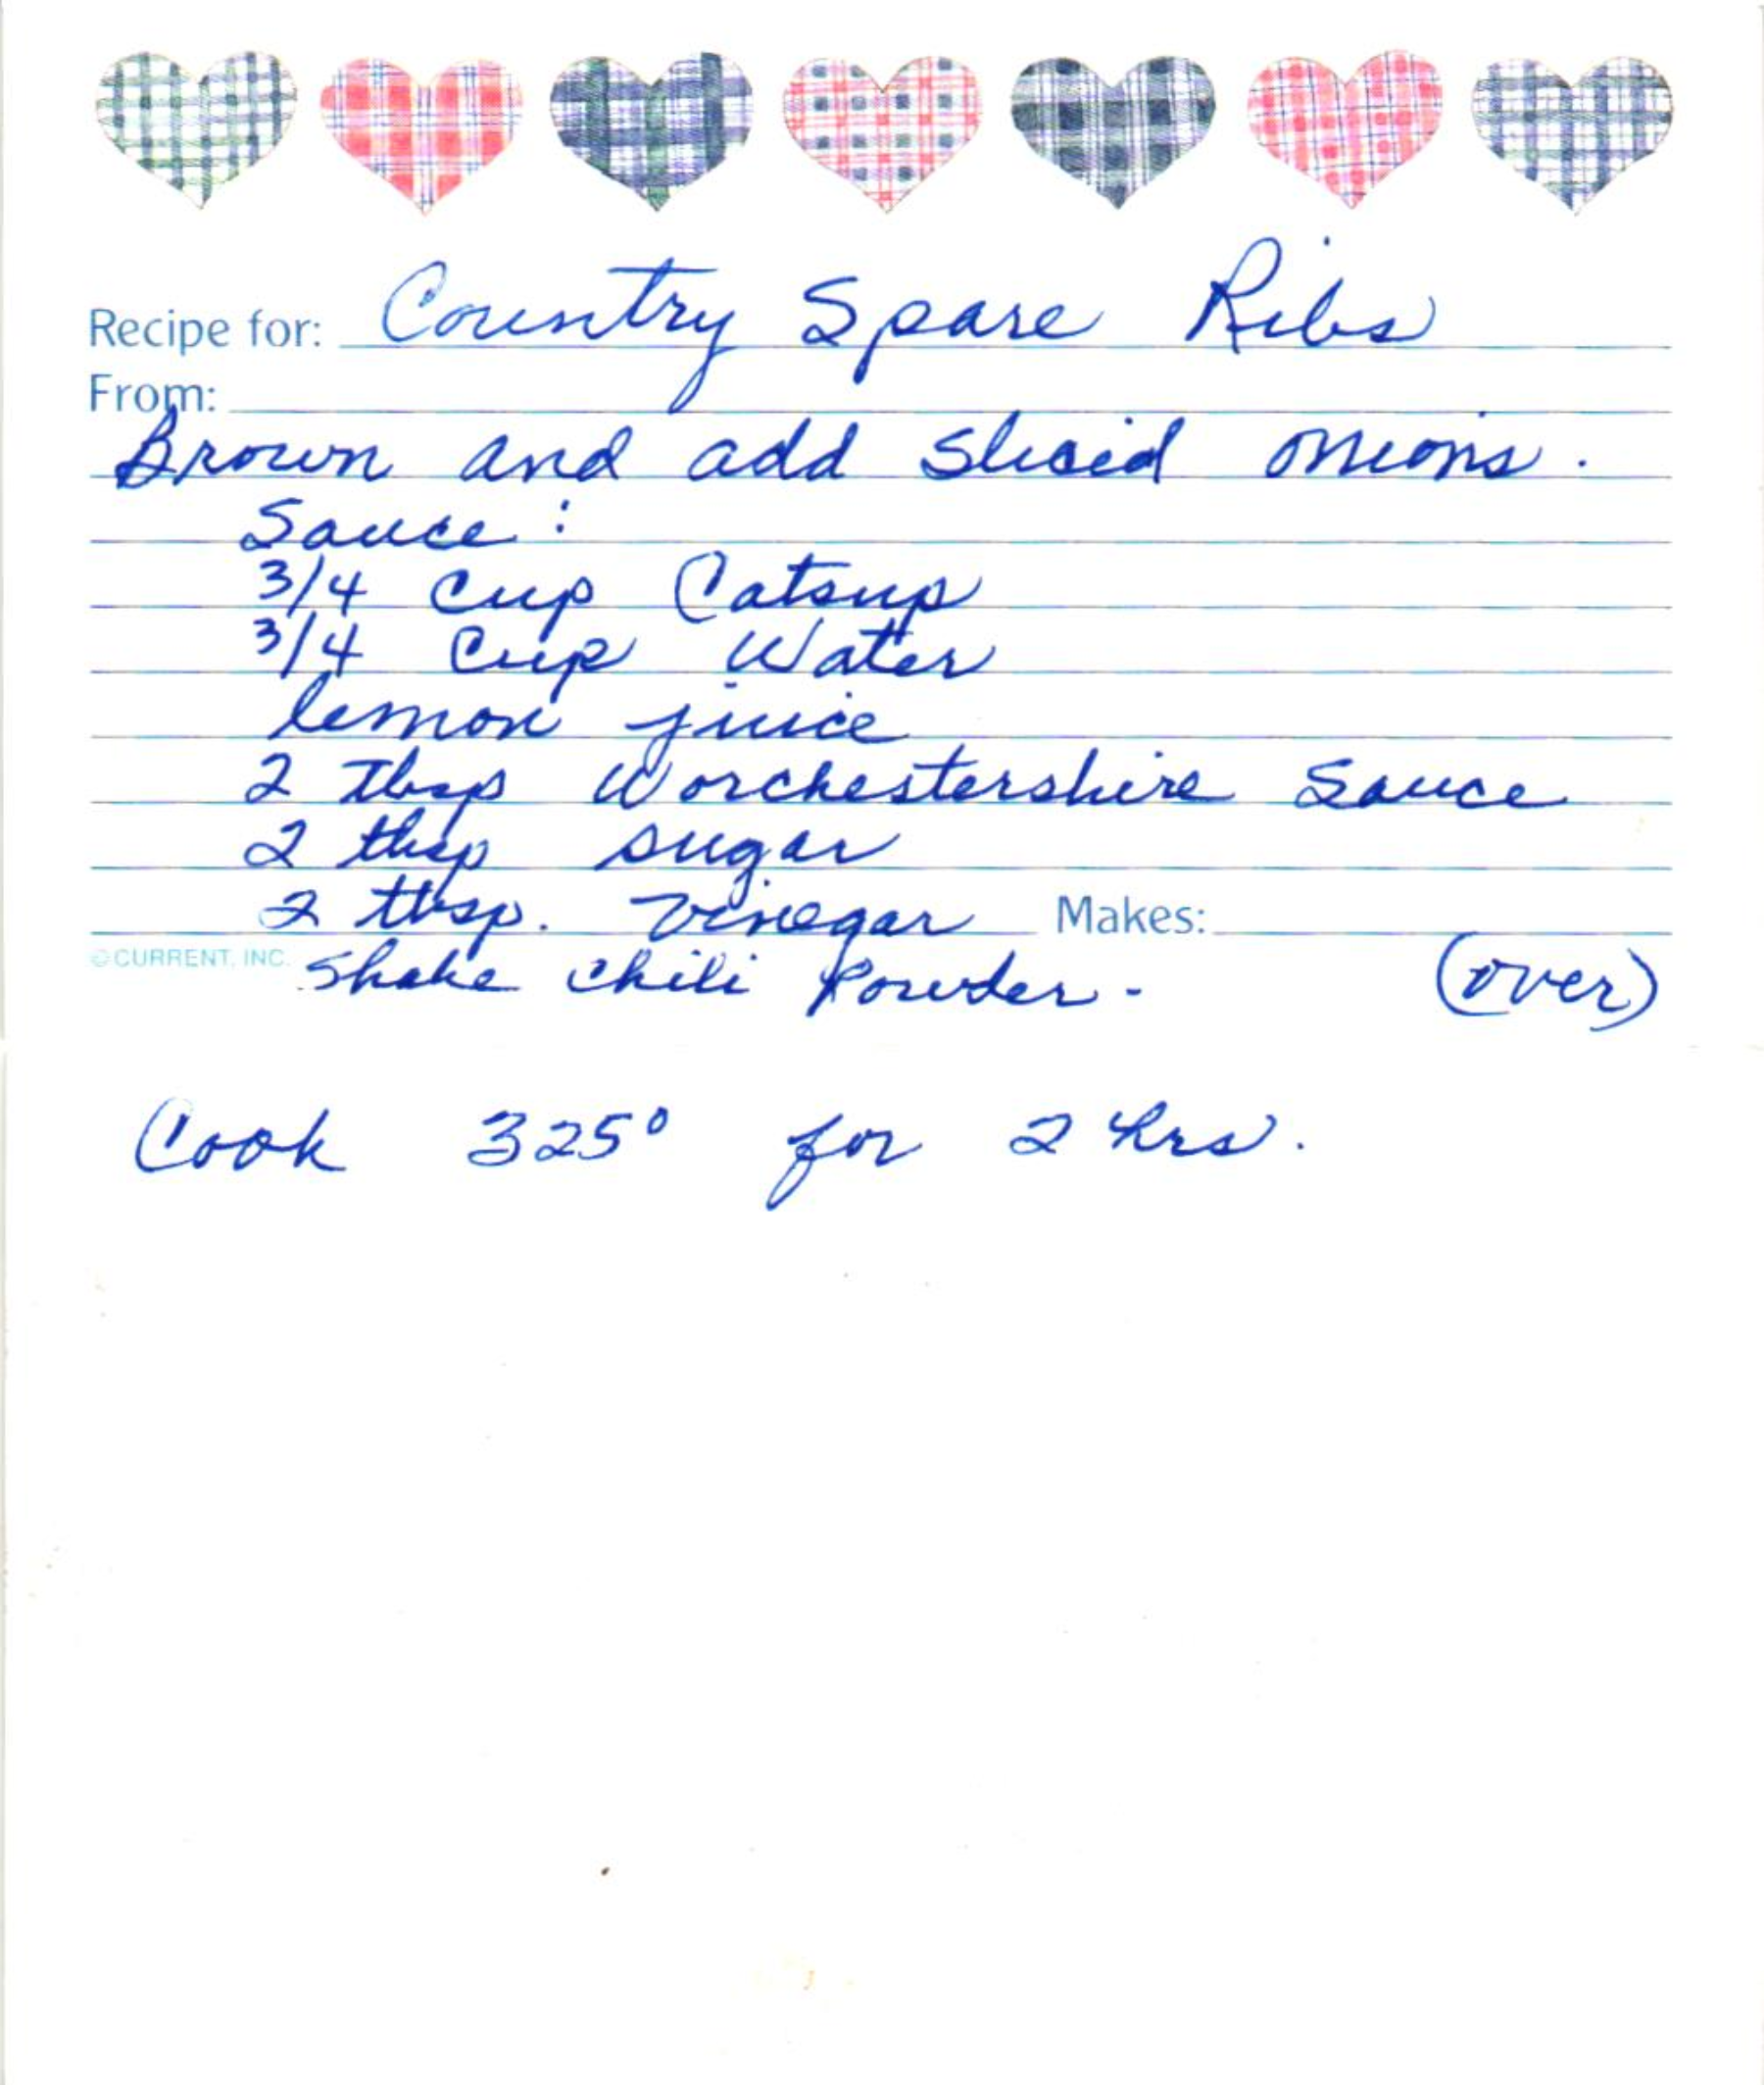 Recipe for: Country Spare Ribs
From:
Brown and add sliced onions.
Sauce:
3/4 cup Catsup
3/4 Cup Water
lemon juice
2 Tbsp Worchestershire Sauce
2 tbsp sugar
2 tbsp. Vinegar Makes:
©CURRENT, INC. Shake chili Powder - (over)
Cook 325° for 2 hrs.